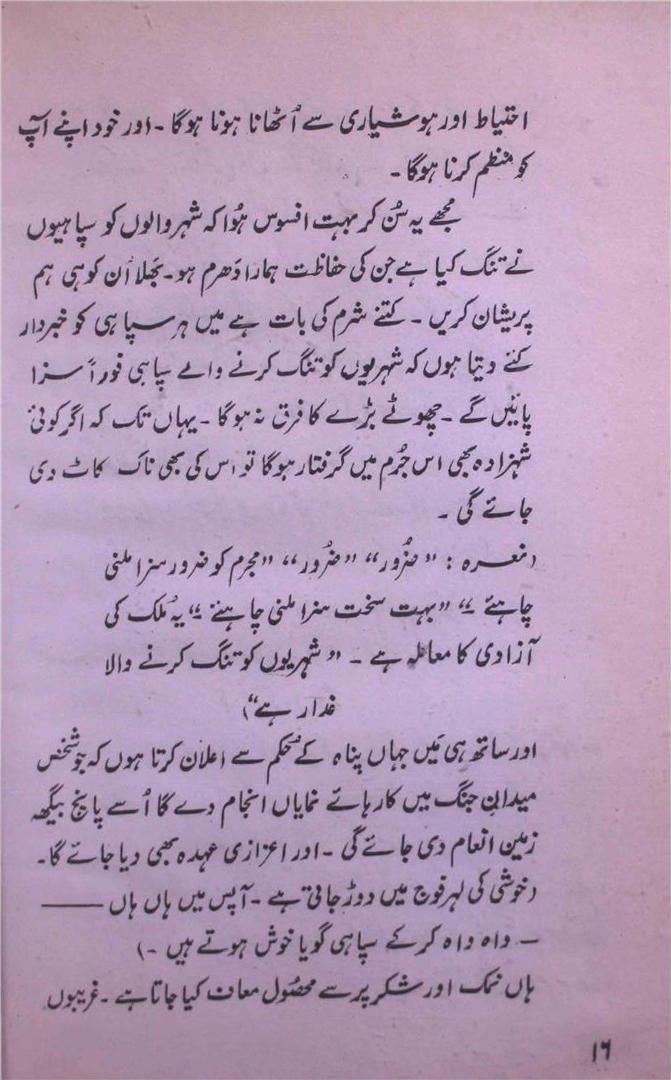 احتیاط اور ہوشیاری سے اُٹھانا ہونا ہوگا ۔ اور خود اپنے آپ
کو منظم کرنا ہوگا ۔
مجھے یہ سُن کر بہت افسوس ہُوا کہ شہر والوں کو سپاہیوں
نے تنگ کیا ہے جن کی حفاظت ہمارا دَھرم ہو ۔ بَھلا اُن کو ہی ہم
پریشان کریں ۔ کتنے شرم کی بات ہے میں ہر سپاہی کو خبردار
کئے دیتا ہوں کہ شہریوں کو تنگ کرنے والے سپاہی فوراً سزا
پائیں گے ۔ چھوٹے بڑے کا فرق نہ ہوگا ۔ یہاں تک کہ اگر کوئی
شہزادہ بھی اس جُرم میں گرفتار ہوگا تو اس کی بھی ناک کاٹ دی
جائے گی ۔
(نعرہ : " ضرُور" " ضرُور" " مجرم کو ضرور سزا ملنی
چاہئے ۔" "بہت سخت سزا ملنی چاہیئے ۔" یہ مُلک کی
آزادی کا معاملہ ہے ۔ " شہریوں کو تنگ کرنے والا
غدار ہے")
اور ساتھ ہی مَیں جہاں پناہ کے حکم سے اعلان کرتا ہوں کہ جو شخص
میدانِ جنگ میں کارہائے نمایاں انجام دے گا اُسے پانچ بیگھہ
زمین انعام دی جائے گی ۔ اور اعزازی عہدہ بھی دیا جائے گا ۔
(خوشی کی لہر فوج میں دوڑ جاتی ہے ۔ آپس میں ہاں ہاں ——
— واہ واہ کرکے سپاہی گویا خوش ہوتے ہیں ۔)
ہاں نمک اور شکر پر سے محصُول معاف کیا جاتا ہے ۔ غریبوں
۱۶